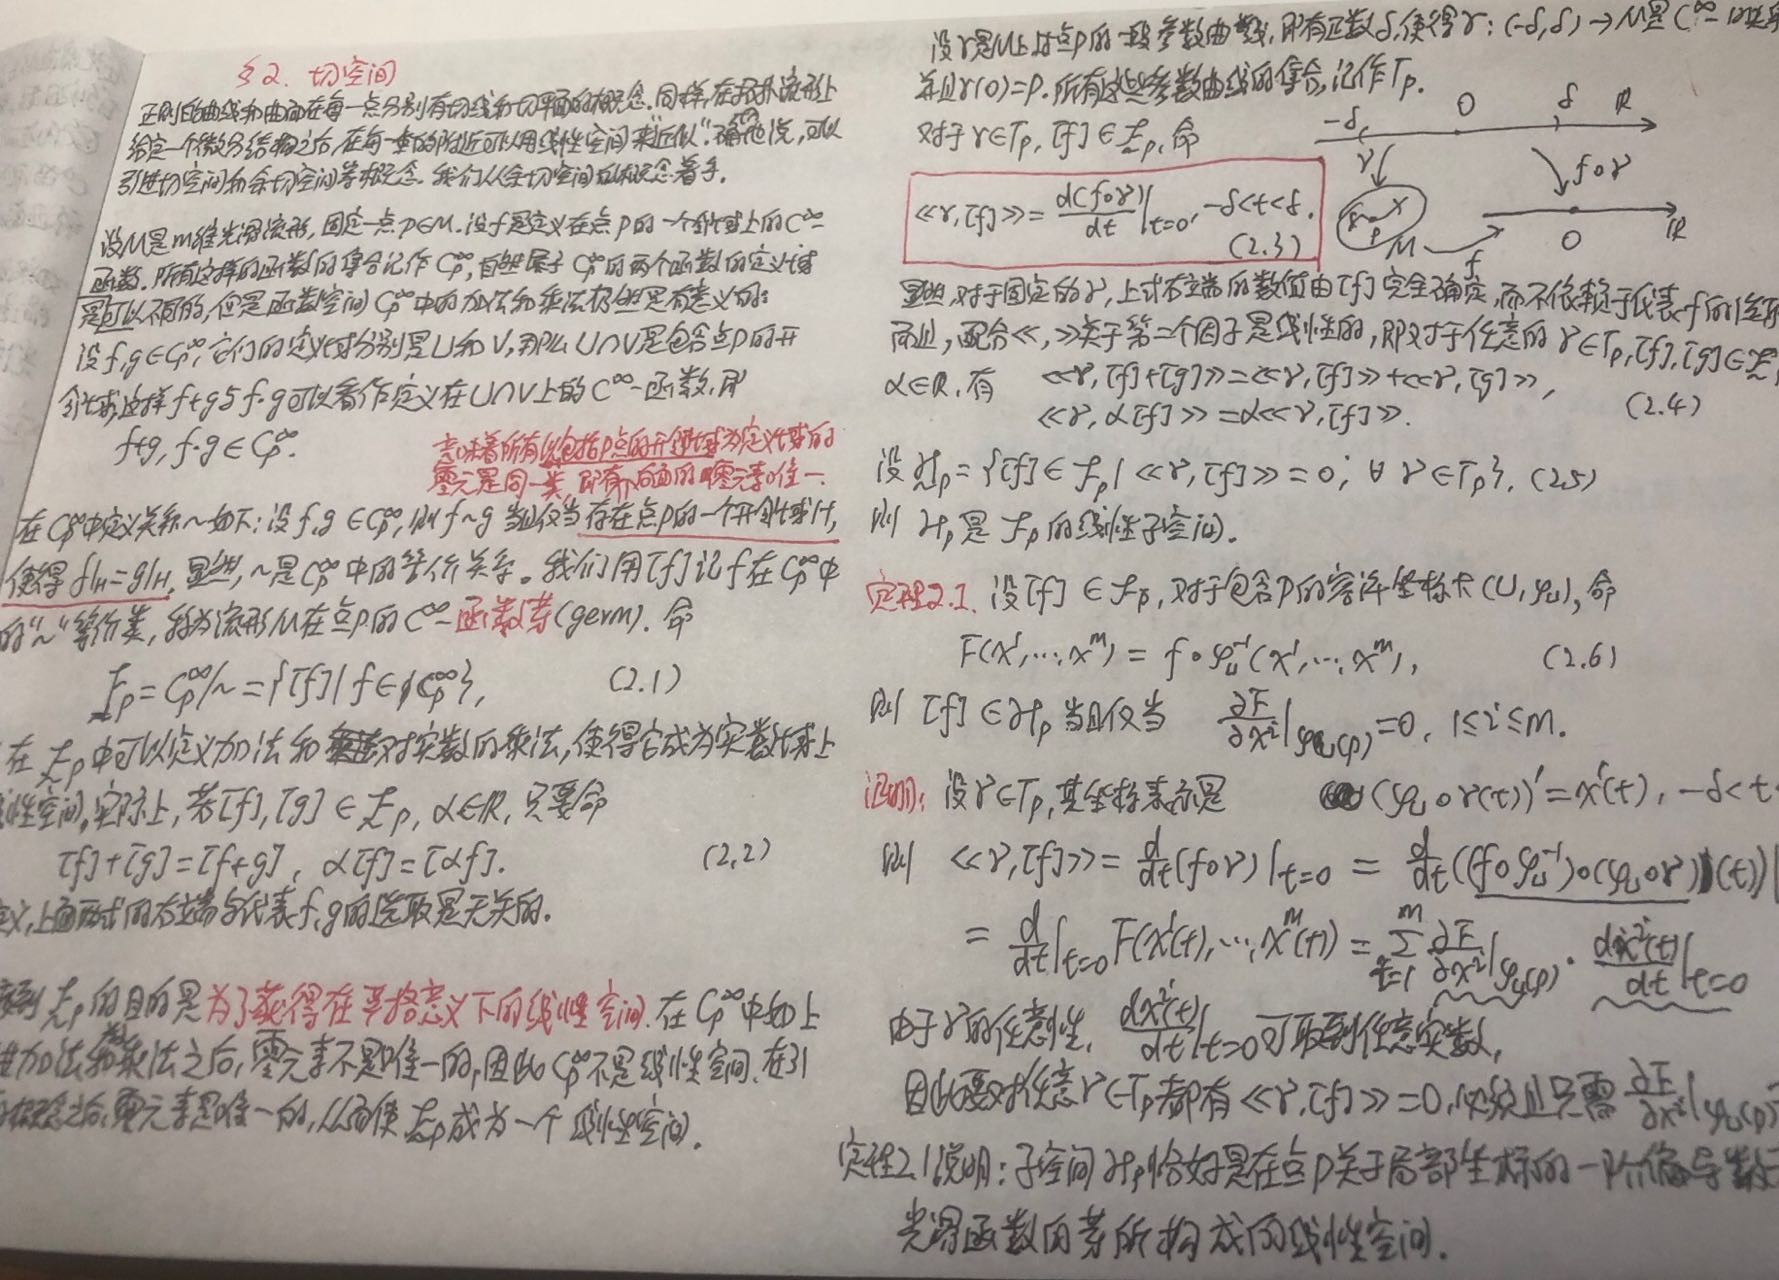 §2. 切空间
正则的曲线和曲面在每一点分别有切线和切平面的概念. 同样, 在拓扑流形上
给定一个微分结构之后, 在每一点的附近可以用线性空间来"近似". 确切地说, 可以
引进切空间和余切空间等概念. 我们从余切空间的概念着手.
设M是m维光滑流形, 固定一点p∈M. 设f是定义在点p的一个邻域上的C^∞-
函数. 所有这样的函数的集合记作 C_p^∞, 自然属于 C_p^∞ 的两个函数的定义域
是可以不同的, 但是函数空间 C_p^∞ 中的加法和乘法仍然是有意义的:
设 f, g ∈ C_p^∞, 它们的定义域分别是U和V, 那么 U∩V是包含点p的开
邻域, 这样 f+g与 f·g可以看作定义在U∩V上的 C^∞-函数, 即
f+g, f·g ∈ C_p^∞.
意味着所有以包括p点的开邻域为定义域的
零元是同一类, 即有后面的零元素唯一.
在 C_p^∞ 中定义关系~如下: 设 f, g ∈ C_p^∞, 则 f~g 当且仅当 存在点p的一个开邻域H,
使得 f|_H = g|_H. 显然, ~是 C_p^∞ 中的等价关系。我们用[f]记f在 C_p^∞ 中
的"~"等价类, 称为流形M在点p的 C^∞-函数芽(germ). 命
F_p = C_p^∞/~ = {[f] | f ∈ C_p^∞}, (2.1)
在 F_p 中可以定义加法和对实数的乘法, 使得它成为实数域上
性空间. 实际上, 若[f], [g] ∈ F_p, α∈R, 只要命
[f]+[g]=[f+g], α[f]=[αf]. (2.2)
义, 上面两式的右端与代表f, g的选取是无关的.
F_p 的目的是为了获得在严格意义下的线性空间. 在 C_p^∞ 中如上
加法和乘法之后, 零元素不是唯一的, 因此 C_p^∞ 不是线性空间. 在引
概念之后, 零元素是唯一的, 从而使 F_p 成为一个 线性空间.
设γ是M上过点p的一段参数曲线, 即有正数δ, 使得γ: (-δ,δ) → M是 C^∞-
并且γ(0)=p. 所有这些参数曲线的集合, 记作 Γ_p.
对于 γ∈Γ_p, [f] ∈ F_p, 命
≪γ, [f]≫ = d(f∘γ)/dt |_{t=0}, -δ<t<δ. (2.3)
-δ 0 δ R
γ f∘γ
p M f 0 R
显然, 对于固定的γ, 上式右端的数值由[f]完全确定, 而不依赖于代表f的选取
而且, 配合≪,≫关于第二个因子是线性的, 即对于任意的 γ∈Γ_p, [f], [g]∈F_p
α∈R, 有 ≪γ, [f]+[g]≫=≪γ, [f]≫+≪γ, [g]≫,
≪γ, α[f]≫=α≪γ, [f]≫. (2.4)
设 H_p = {[f] ∈ F_p | ≪γ, [f]≫ = 0, ∀ γ ∈ Γ_p}, (2.5)
则 H_p 是 F_p 的线性子空间.
定理2.1. 设[f] ∈ F_p, 对于包含p的容许坐标卡 (U, φ_U), 命
F(x^1, ⋯, x^m) = f∘φ_U^{-1}(x^1, ⋯, x^m), (2.6)
则 [f] ∈ H_p 当且仅当 ∂F/∂x^i |_{φ_U(p)} = 0, 1≤i≤m.
证明: 设γ∈Γ_p, 其坐标表示是 (φ_U∘γ(t))^i = x^i(t), -δ<t
则 ≪γ, [f]≫ = d/dt (f∘γ)|_{t=0} = d/dt ((f∘φ_U^{-1})∘(φ_U∘γ)(t))|
= d/dt|_{t=0} F(x^1(t), ⋯, x^m(t)) = Σ_{i=1}^m ∂F/∂x^i |_{φ_U(p)} · dx^i(t)/dt |_{t=0}
由于γ的任意性, dx^i(t)/dt |_{t=0} 可取到任意实数,
因此要对任意 γ∈Γ_p 都有 ≪γ, [f]≫ = 0, 必须且只需 ∂F/∂x^i |_{φ_U(p)}
定理2.1说明: 子空间 H_p 恰好是在点p关于局部坐标的一阶偏导数
光滑函数的芽所构成的线性空间.